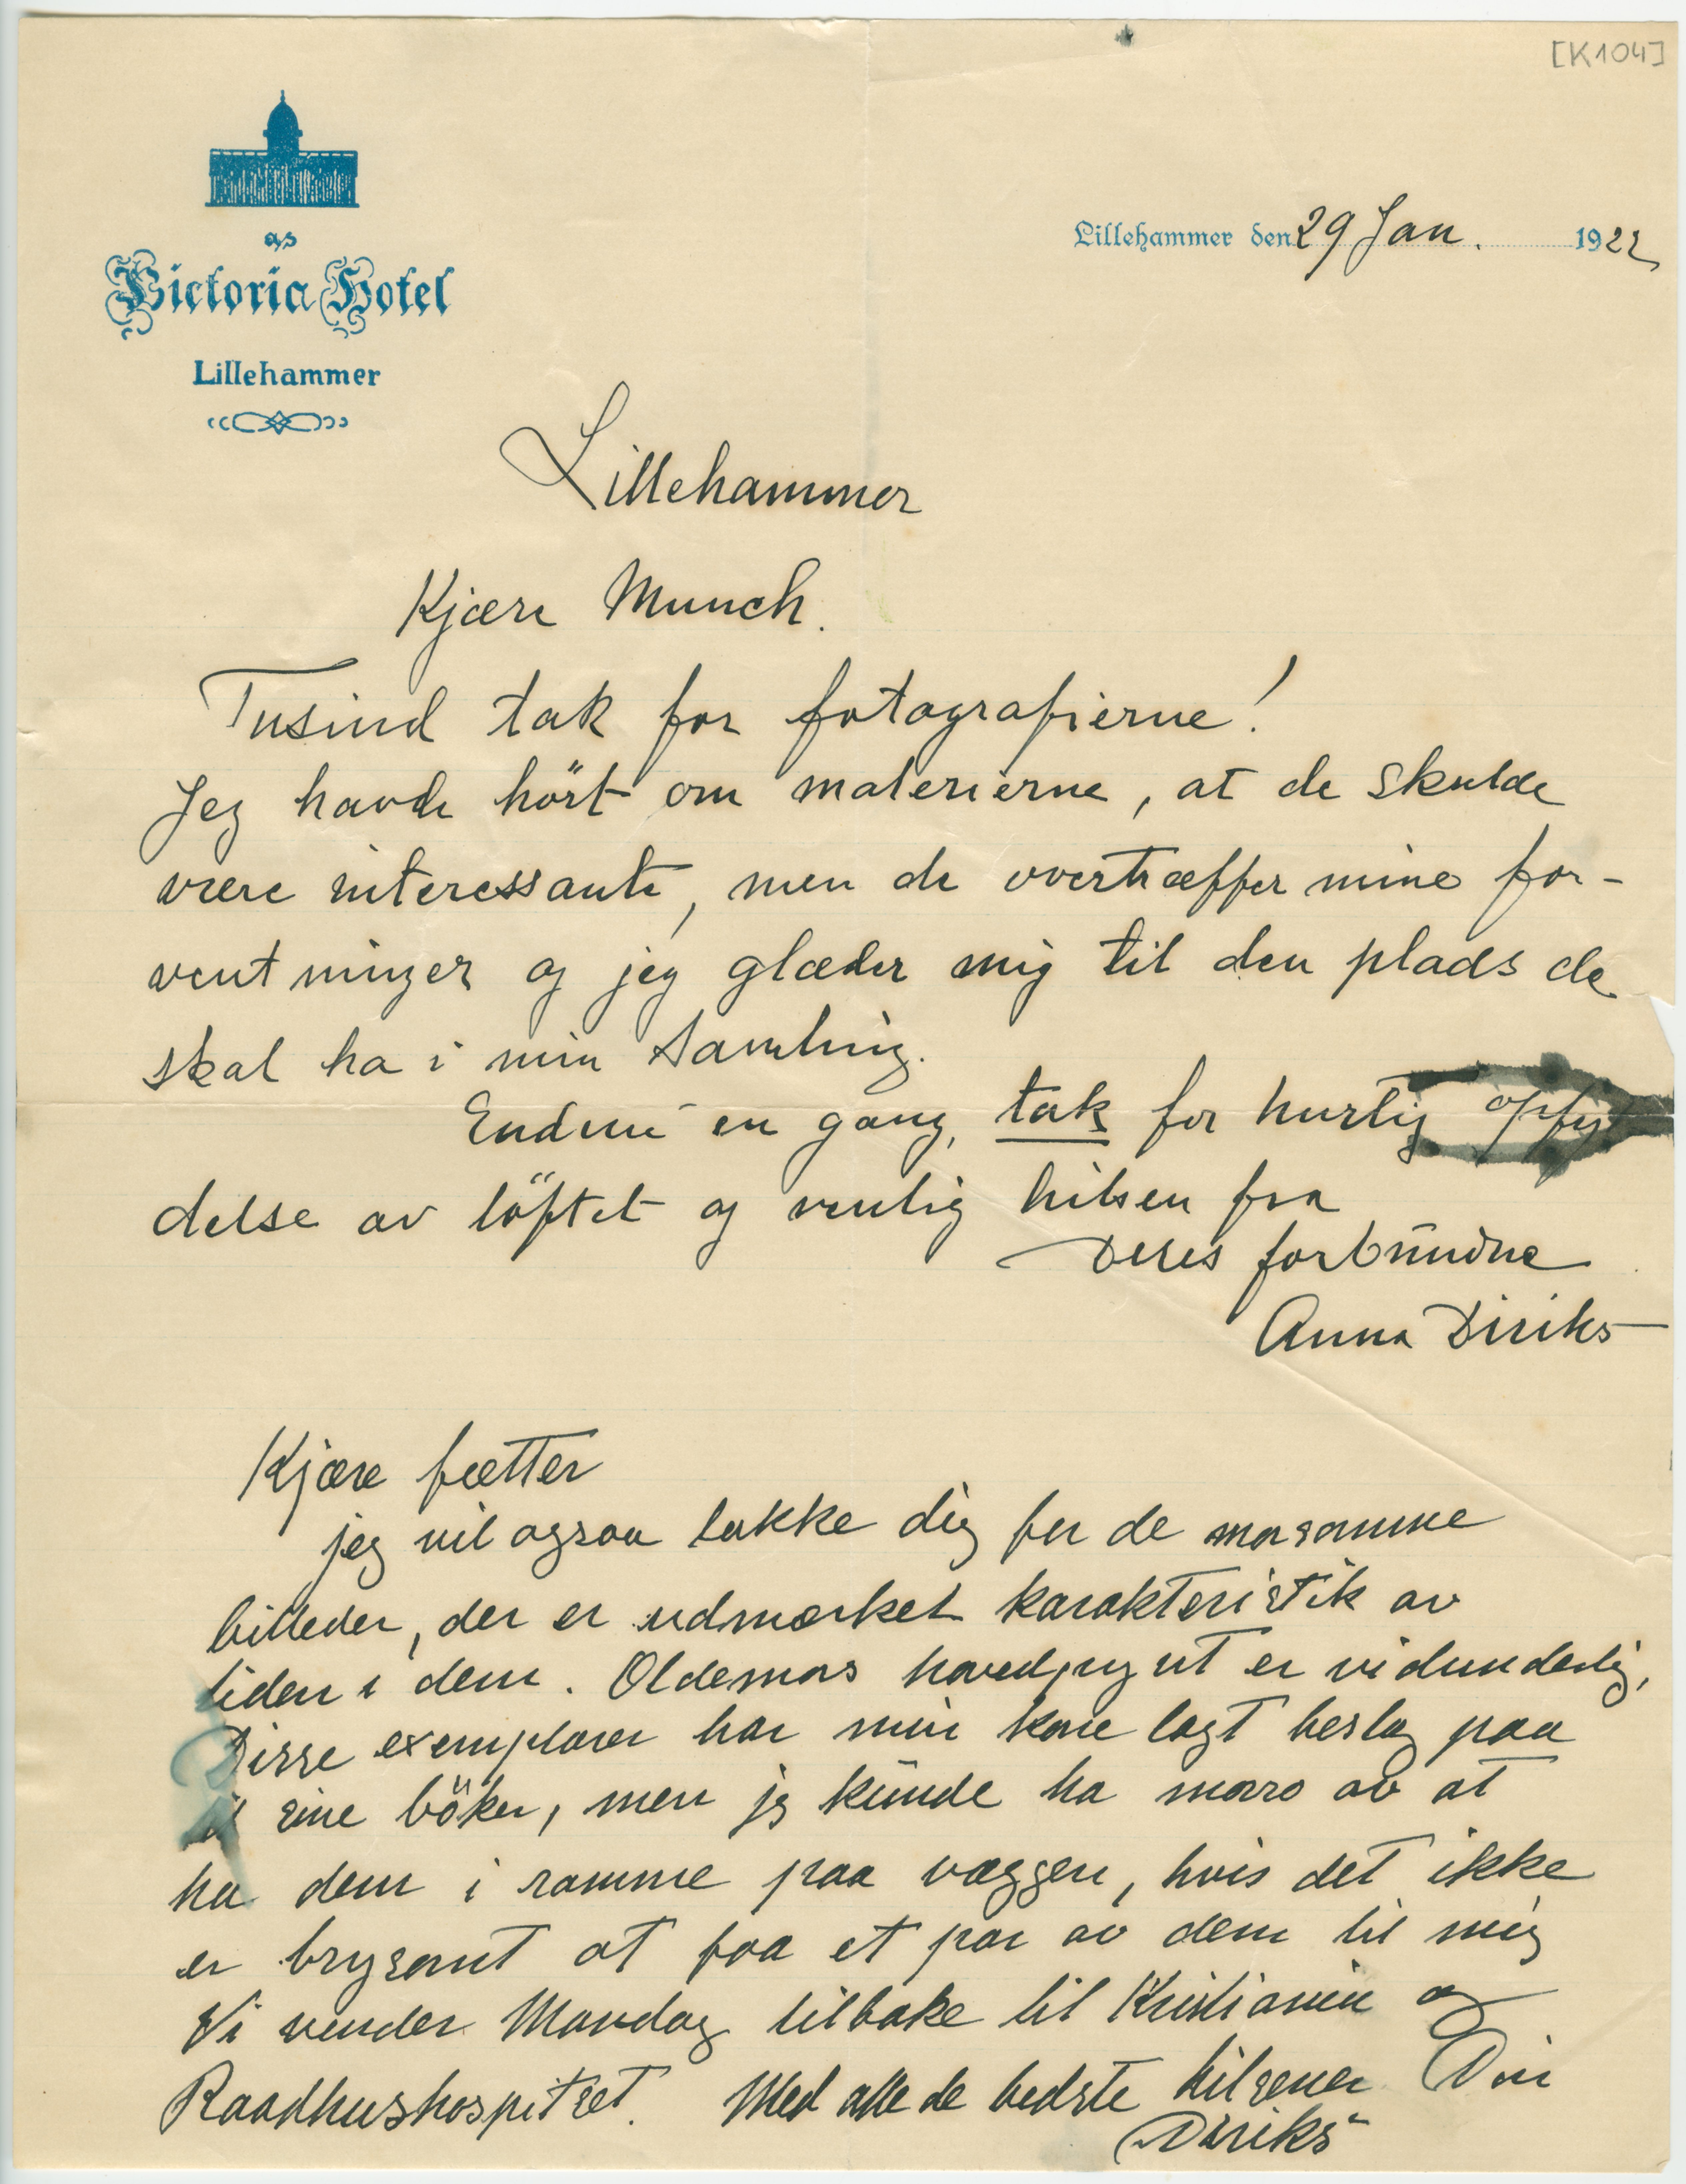 [K104]
as
Victoria Hotel
Lillehammer
Lillehammer den 29 Jan. 1922
Lillehammer
Kjære Munch.
Tusind tak for fotografierne!
Jeg havde hört om malerierne, at de skulde
være interessante, men de overtræffer mine for-
ventninger og jeg glæder mig til den plads de
skal ha i min Samling.
Endnu en gang, tak for hurtig opfyl
delse av löftet og venlig hilsen fra
Deres forbundne
Anna Diriks
Kjære fætter
jeg vil ogsaa takke dig for de morsomme
billeder, der er udmærket karakteristik av
tiden i dem. Oldemors hovedpynt er vidunderlig,
Disse exemplarer har min kone lagt beslag paa
til sine böker, men jg kunde ha moro av at
ha dem i ramme paa væggen, hvis det ikke
er brysomt at faa et par av dem til mig
Vi vender Mandag tilbake til Kristiania og
Raadhushospitset. Med alle de bedste hilsener Din
Diriks